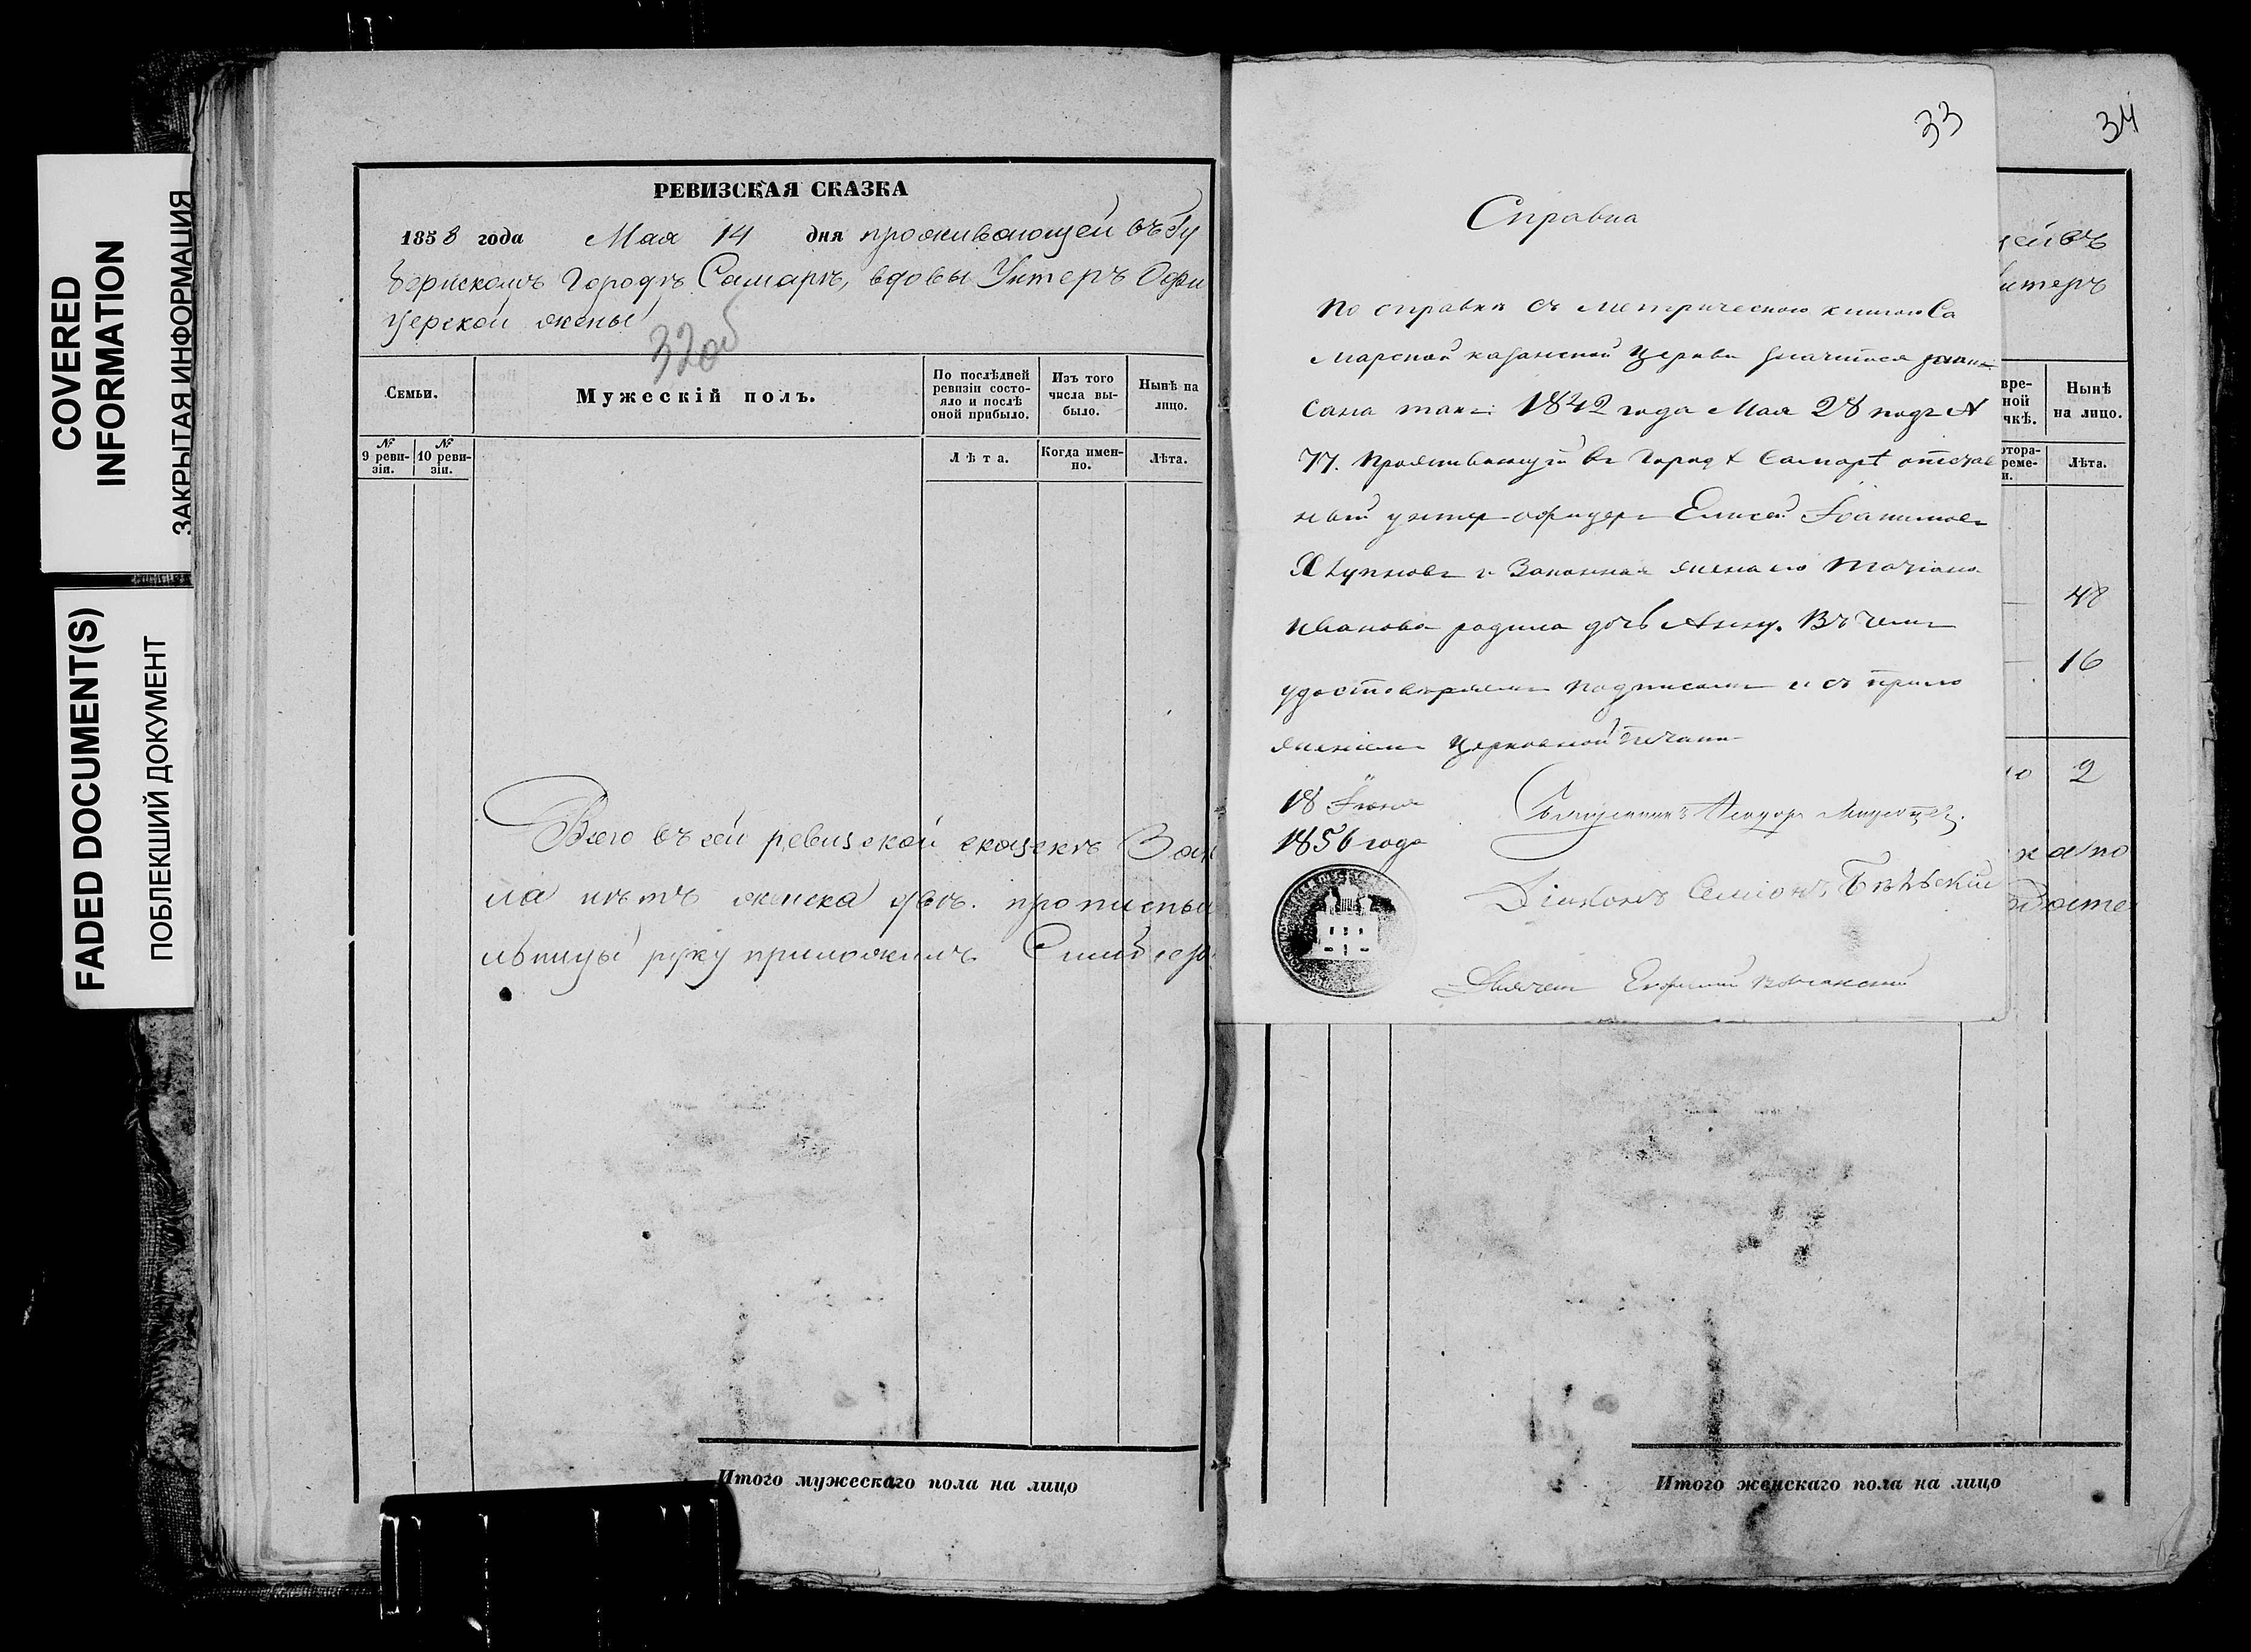 COVERED
INFORMATION
ЗАКРЫТАЯ ИНФОРМАЦИЯ
FADED DOCUMENT(S)
ПОБЛЕКШИЙ ДОКУМЕНТ
РЕВИЗСКАЯ СКАЗКА
1858 года Мая 14 дня проживающей въ Гу
бернскомъ Городѣ Самарѣ, вдовы Унтеръ Офи
церской жены
32об
Семьи.
Мужескій полъ.
По послѣдней
ревизіи состо-
яло и послѣ
оной прибыло.
Изъ того
числа вы-
было.
Нынѣ на
лицо.
№
9 реви-
зіи.
№
10 реви-
зіи.
Лѣта.
Когда имен-
но.
Лѣта.
Всего въ сей ревизской сказкѣ
ла нѣтъ женска двѣ.
руку приложилъ
Итого мужескаго пола на лицо
33
Справка
По справкѣ съ метрическою книгою Са
марской казанской Церкви значится запи
сана такъ: 1842 года Мая 28 подъ №
77. Проживающій въ Городѣ Самарѣ отстав
ный унтер-офицеръ Елисей
и Законная жена его Татіана
Иванова родила дочь Анну. Въ чемъ
удостовѣряемъ подписомъ и съ прило
женіемъ Церковной печати
18 Іюня
1856 года
Священникъ Феодоръ
Діаконъ Семіонъ
Дьячекъ Евфимий
34
ей въ
нтеръ
вре-
ной
чкѣ.
Нынѣ
на лицо.
отора-
реме-
н.
Лѣта.
48
16
2
Итого женскаго пола на лицо